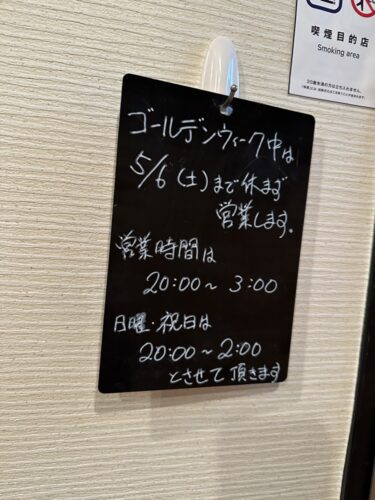 喫煙目的店
Smoking area
ゴールデンウィーク中は
5/6(土)まで休まず
営業します。
営業時間は
20:00〜3:00
日曜・祝日は
20:00〜2:00
とさせて頂きます